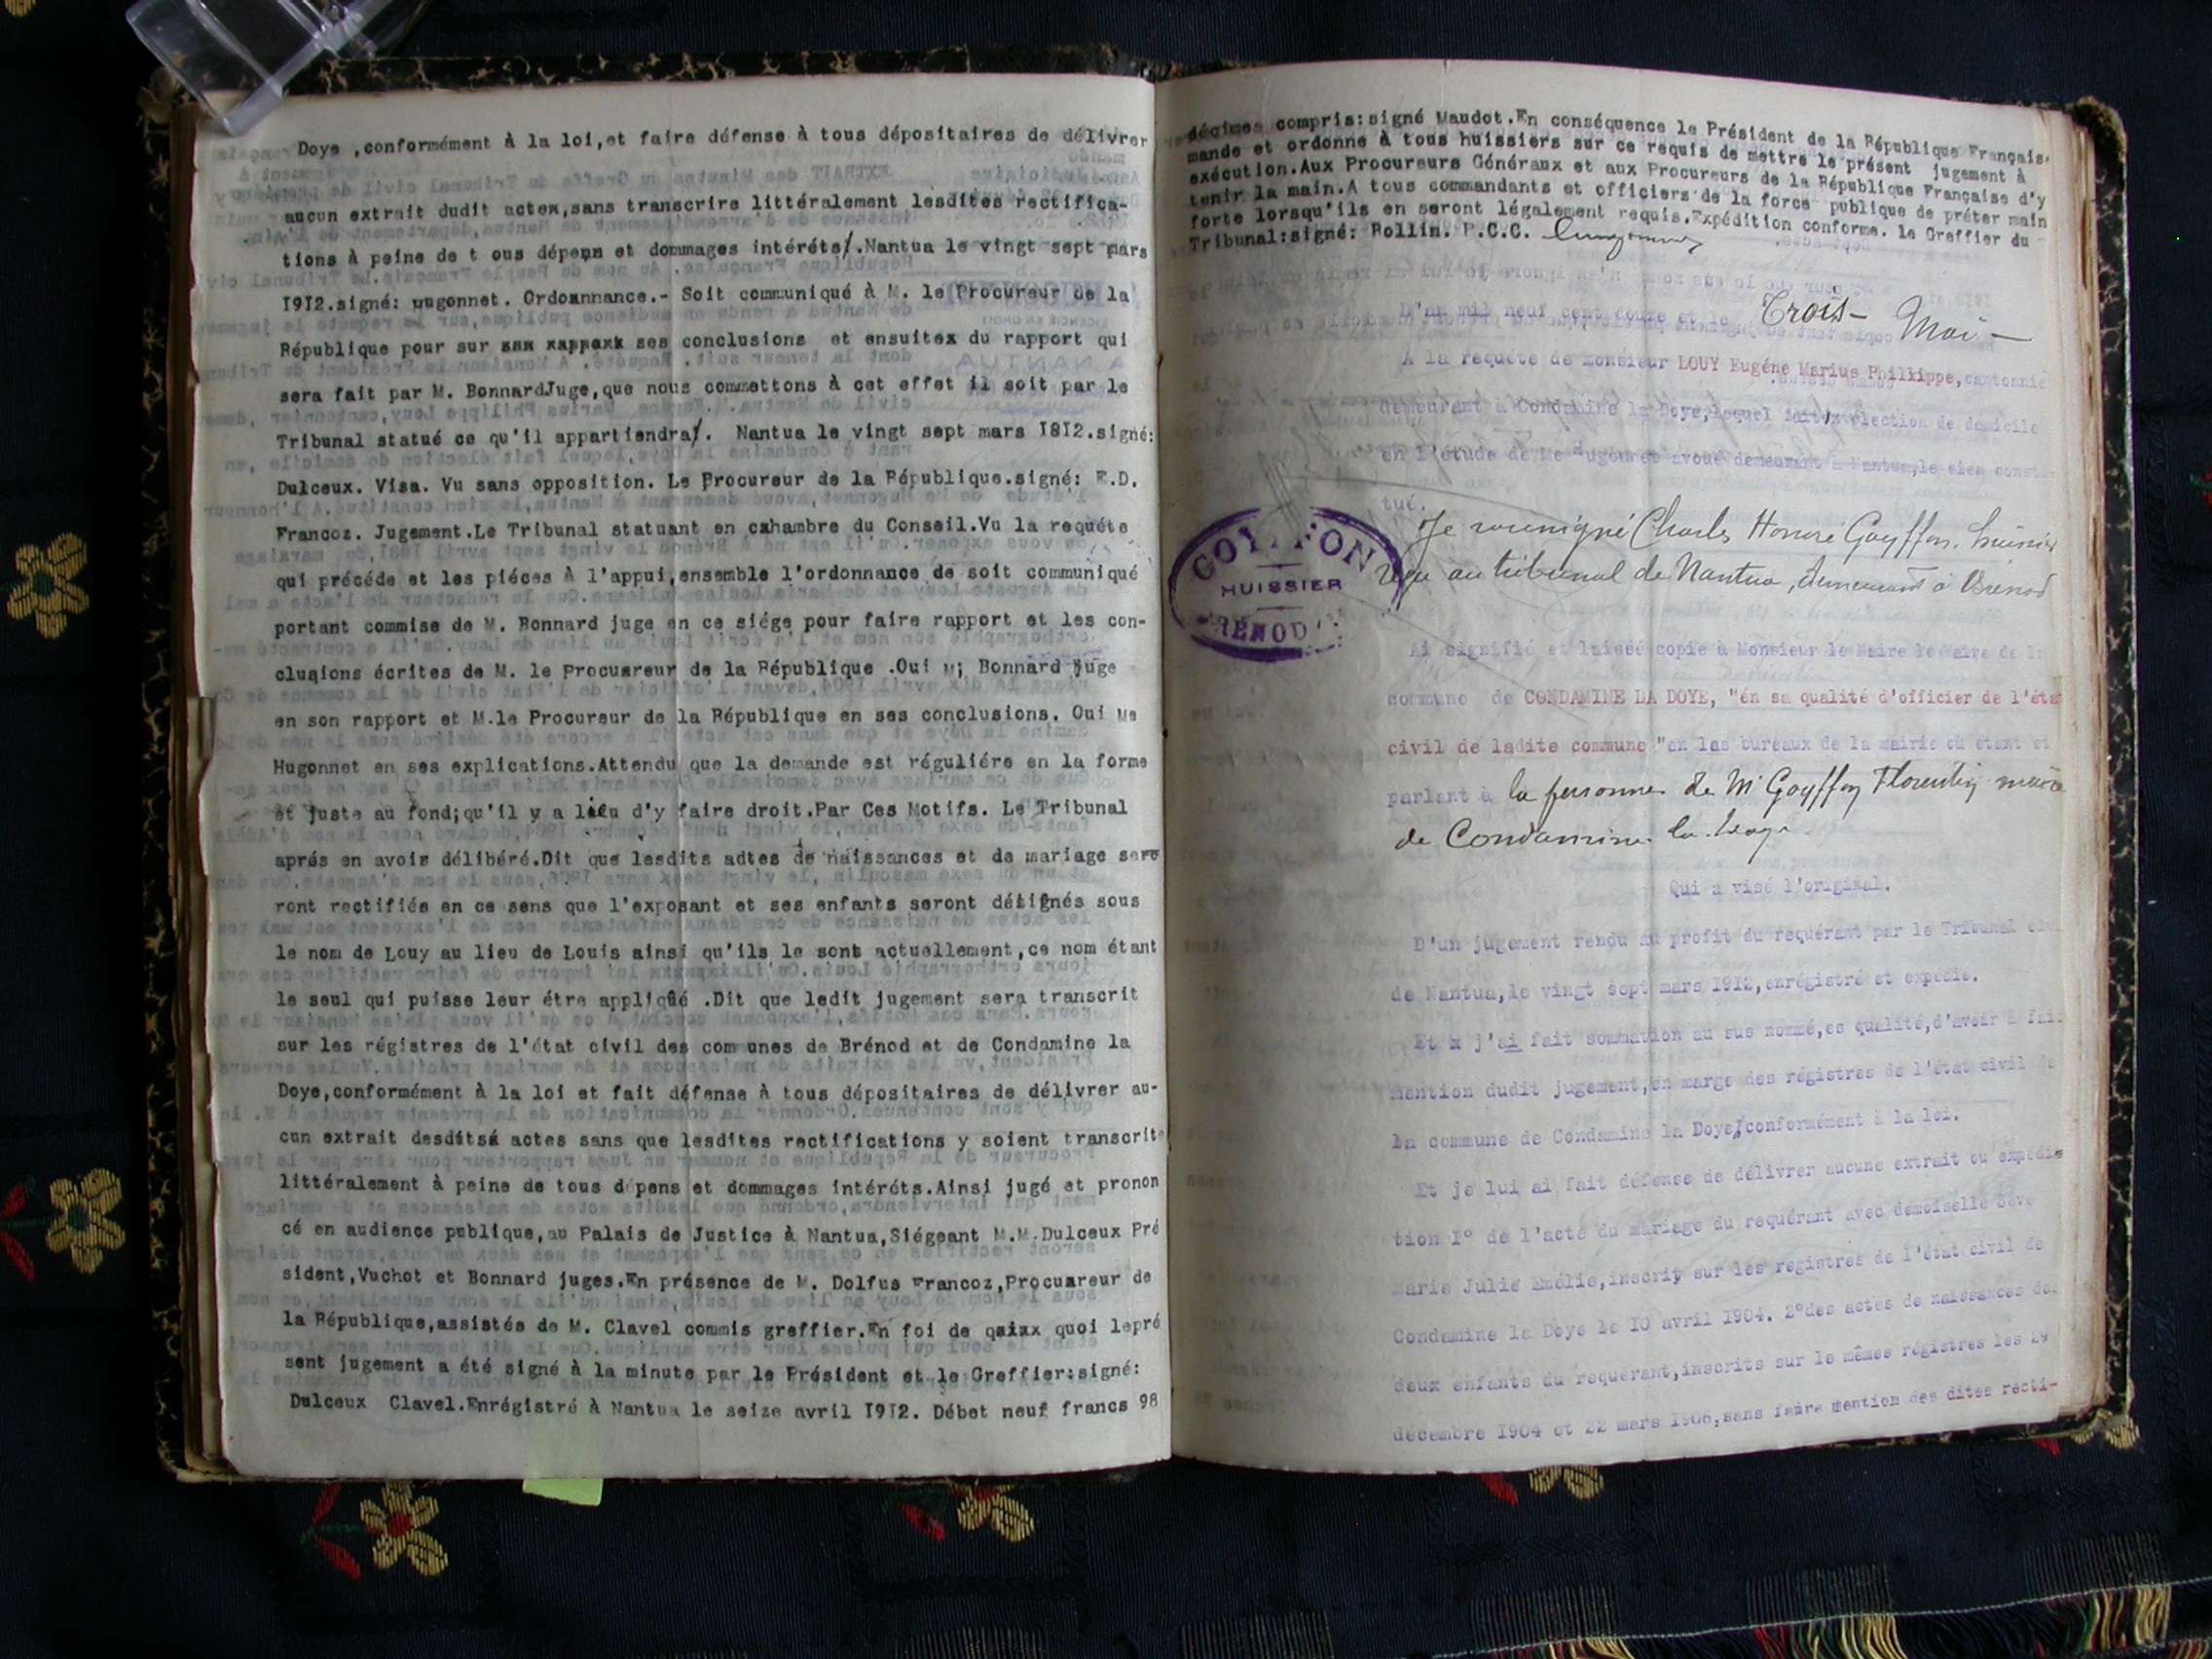 Doye ,conformément à la loi,et faire défense à tous dépositaires de délivrer
aucun extrait dudit actex,sans transcrire littéralement lesdites rectifica-
tions à peine de t ous dépens et dommages intéréts/.Nantua le vingt sept mars
1912.signé: Hugonnet. Ordoannance.- Soit communiqué à M. le Procureur de la
République pour sur ses conclusions et ensuitex du rapport qui
sera fait par M. BonnardJuge,que nous commettons à cet effet il soit par le
Tribunal statué ce qu'il appartiendra/. Nantua le vingt sept mars 1812.signé:
Dulceux. Visa. Vu sans opposition. Le Procureur de la République.signé: E.D.
Francoz. Jugement.Le Tribunal statuant en cahambre du Conseil.Vu la requéte
qui précéde et les piéces à l'appui,ensemble l'ordonnance de soit communiqué
portant commise de M. Bonnard juge en ce siége pour faire rapport et les con-
clusions écrites de M. le Procuareur de la République .Oui M; Bonnard juge
en son rapport et M.le Procureur de la République en ses conclusions. Oui Me
Hugonnet en ses explications.Attendu que la demande est réguliére en la forme
et juste au fond;qu'il y a lieu d'y faire droit.Par Ces Motifs. Le Tribunal
aprés en avoir délibéré.Dit que lesdits adtes de naissances et de mariage sero
ront rectifiés en ce sens que l'exposant et ses enfants seront désignés sous
le nom de Louy au lieu de Louis ainsi qu'ils le sont actuellement,ce nom étant
le seul qui puisse leur étre appliqué .Dit que ledit jugement sera transcrit
sur les régistres de l'état civil des com unes de Brénod et de Condamine la
Doye,conformément à la loi et fait défense à tous dépositaires de délivrer au-
cun extrait desditsá actes sans que lesdites rectifications y soient transcrite
littéralement à peine de tous d pens et dommages intéréts.Ainsi jugé et pronon
cé en audience publique,au Palais de Justice à Nantua,Siégeant M.M.Dulceux Pré
sident,Vuchot et Bonnard juges.En présence de M. Dolfus Francoz,Procuareur de
la République,assistés de M. Clavel commis greffier.En foi de quoi lepré
sent jugement a été signé à la minute par le Président et le Greffier:signé:
Dulceux Clavel.Enrégistré à Nantua le seize avril 1912. Débet neuf francs 98
décimes compris:signé Maudot.En conséquence le Président de la République Français
mande et ordonne à tous huissiers sur ce requis de mettre le présent jugement à
exécution.Aux Procureurs Généraux et aux Procureurs de la République Française d'y
tenir la main.A tous commandants et officiers de la force publique de préter main
forte lorsqu'ils en seront légalement requis.Expédition conforme. le Greffier du -
Tribunal:signé: Rollin. P.C.C.
L'an mil neuf cent douze et le Trois - Mai -
A la requéte de monsieur LOUY Eugéne Marius Phillippe,cantonnie
demeurant à Condamine la Doye,lequel fait élection de domicile
en l'étude de Me Hugonnet avoué demeurant à Nantua,le sien consti
tué.
Je soussigné Charles Honoré Goyffon, huissier
reçu au tribunal de Nantua, demeurant à Brénod
GOYFFON
HUISSIER
BRENOD
Ai signifié et laissé copie à Monsieur le Maire le Maire de la
commune de CONDAMINE LA DOYE, "én sa qualité d'officier de l'éta
civil de ladite commune "en las bureaux de la mairie où étant et
parlant à la personne de Mr Goyffon Florentin maire
de Condamine la Doye
Qui a visé l'original.
D'un jugement rendu au profit du requérant par le Tribunal ci
de Nantua,le vingt sept mars 1912,enrégistré et expédié.
Et x j'ai fait sommation au sus nommé,es qualité,d'avoir à fai
mention dudit jugement,én marge des régistres de l'état civil de
la commune de Condamine la Doye,conformément à la loi.
Et je lui ai fait défense de délivrer aucune extrait ou expédi
tion 1° de l'acté du mariage du requérant avec demoiselle Séve
Marie Julie Emélie,inscrit sur les registres de l'état civil de
Condamine la Doye le 10 avril 1904. 2°des actes de naissances des
deux enfants du requérant,inscrits sur le mêmes régistres les 29
décembre 1904 et 22 mars 1906,sans faire mention des dites recti-